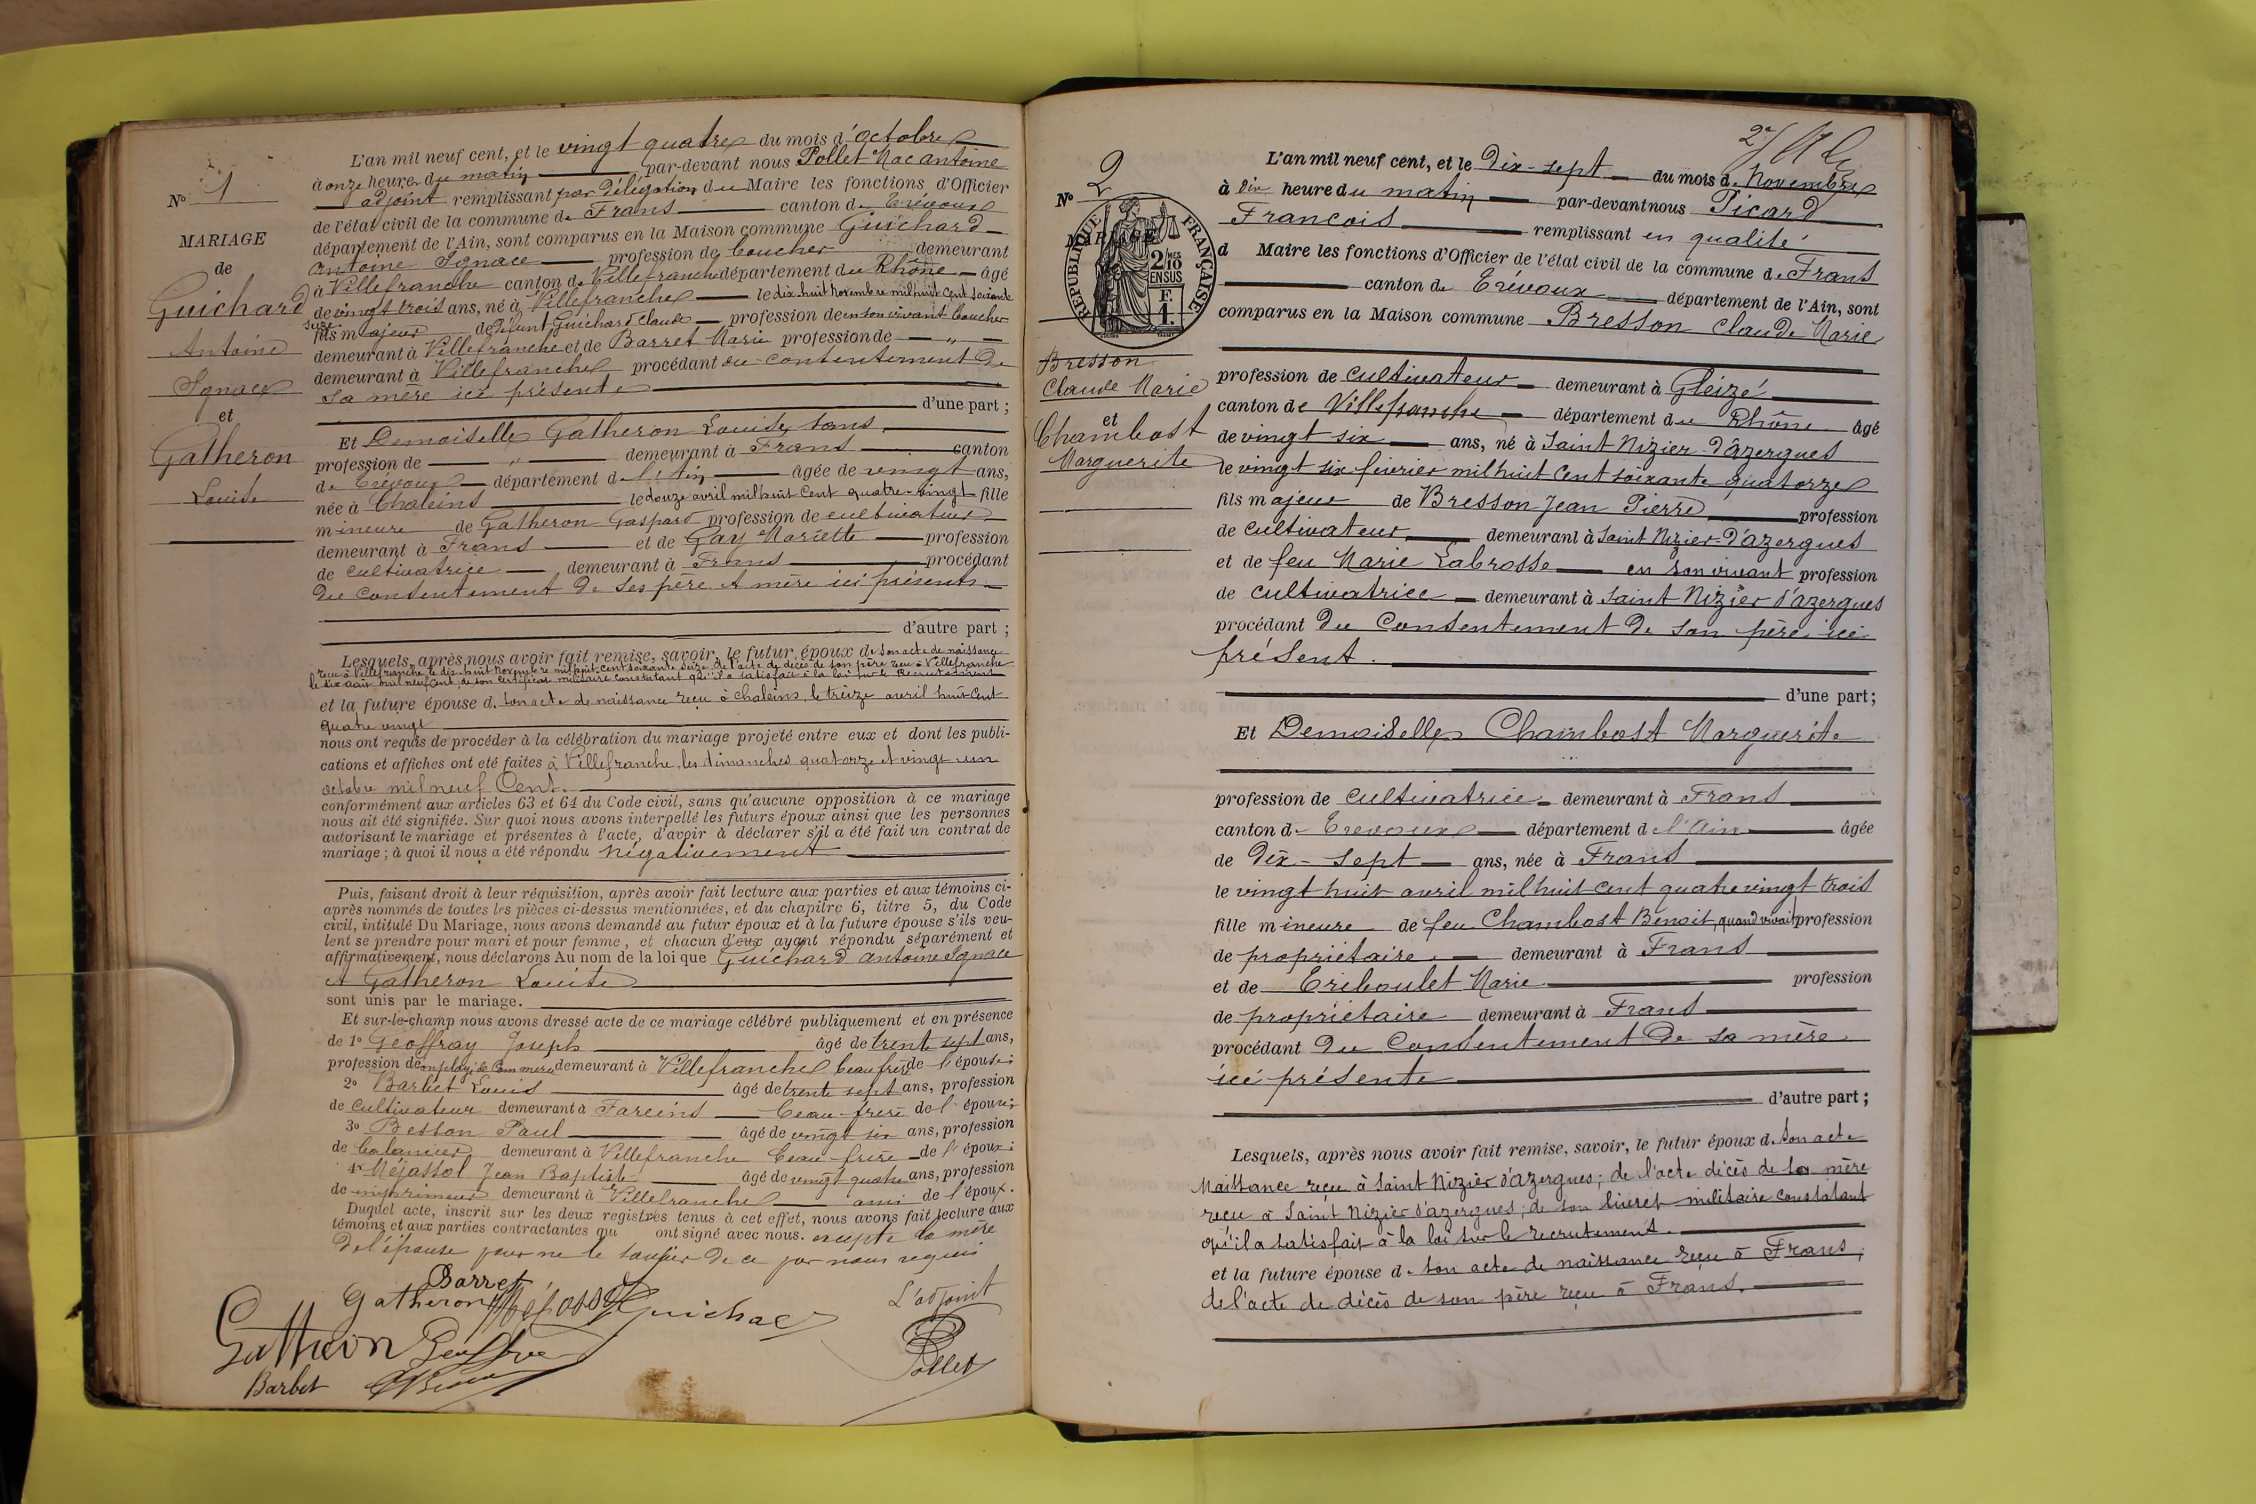 L'an mil neuf cent, et le vingt quatre du mois d'octobre
à onze heures du matin par-devant nous Pollet Mac antoine
adjoint remplissant par délégation du Maire les fonctions d'Officier
de l'état civil de la commune de Frans canton de Trévoux
département de l'Ain, sont comparus en la Maison commune Guichard
antoine Ignace profession de boucher demeurant
à Villefranche canton de Villefranche département du Rhône âgé
de vingt trois ans, né à Villefranche le dix huit novembre mil huit cent soixante
seize
fils majeur de défunt Guichard Claude profession de en son vivant boucher
demeurant à Villefranche et de Barret Marie profession de "
demeurant à Villefranche procédant du consentement de
sa mère ici présente
d'une part ;
Et Demoiselle Gatheron Louise, sans
profession de " demeurant à Frans canton
de Trévoux département de l'Ain âgée de vingt ans,
née à Chaleins le douze avril mil huit cent quatre-vingt fille
mineure de Gatheron Gaspard profession de cultivateur
demeurant à Frans et de Gay Mariette profession
de cultivatrice demeurant à Frans procédant
du consentement de ses père et mère ici présents
d'autre part ;
Lesquels, après nous avoir fait remise, savoir, le futur époux de son acte de naissance
reçu à Villefranche le dix huit novembre mil huit cent soixante seize de l'acte de décès de son père reçu à Villefranche
le six août mil neuf cent, de son certificat militaire constatant qu'il a satisfait à la loi sur le recrutement
et la future épouse d. son acte de naissance reçu à chaleins, le treize avril huit cent
quatre vingt
nous ont requis de procéder à la célébration du mariage projeté entre eux et dont les publi-
cations et affiches ont été faites à Villefranche, les dimanches quatorze et vingt un
octobre mil neuf Cent.
conformément aux articles 63 et 64 du Code civil, sans qu'aucune opposition à ce mariage
nous ait été signifiée. Sur quoi nous avons interpellé les futurs époux ainsi que les personnes
autorisant le mariage et présentes à l'acte, d'avoir à déclarer s'il a été fait un contrat de
mariage ; à quoi il nous a été répondu négativement
Puis, faisant droit à leur réquisition, après avoir fait lecture aux parties et aux témoins ci-
après nommés de toutes les pièces ci-dessus mentionnées, et du chapitre 6, titre 5, du Code
civil, intitulé Du Mariage, nous avons demandé au futur époux et à la future épouse s'ils veu-
lent se prendre pour mari et pour femme, et chacun d'eux ayant répondu séparément et
affirmativement, nous déclarons Au nom de la loi que Guichard antoine Ignace
et Gatheron Louise
sont unis par le mariage.
Et sur-le-champ nous avons dressé acte de ce mariage célébré publiquement et en présence
de 1° Geoffray Joseph âgé de trente sept ans,
profession de employé de Commerce demeurant à Villefranche beau frère de l'épouse ;
2° Barbet Louis âgé de trente sept ans, profession
de cultivateur demeurant à Fareins beau-frère de l'épouse ;
3° Besson Paul âgé de vingt six ans, profession
de demeurant à Villefranche beau-frère de l'époux ;
4° Méjassol Jean Baptiste âgé de vingt quatre ans, profession
de imprimeur demeurant à Villefranche ami de l'époux.
Duquel acte, inscrit sur les deux registres tenus à cet effet, nous avons fait lecture aux
témoins et aux parties contractantes qui ont signé avec nous. excepté la mère
de l'épouse pour ne le savoir de ce par nous requis
Barret
Gatheron Méjassol Guichard L'adjoint
Gatheron Geoffray Pollet
Barbet
N° 1
MARIAGE
de
Guichard
Antoine
Ignace
et
Gatheron
Louise
L'an mil neuf cent, et le Dix-sept du mois de Novembre
à dix heure du matin par-devant nous Picard
François remplissant en qualité
d Maire les fonctions d'Officier de l'état civil de la commune de Frans
canton de Trévoux département de l'Ain, sont
comparus en la Maison commune Bresson Claude Marie
profession de cultivateur demeurant à Gleizé
canton de Villefranche département du Rhône âgé
de vingt six ans, né à Saint Nizier-d'azergues
le vingt six février mil huit cent soixante quatorze
fils majeur de Bresson Jean Pierre profession
de cultivateur demeurant à Saint Nizier-d'azergues
et de feu Marie Labrosse en son vivant profession
de cultivatrice demeurant à Saint Nizier d'azergues
procédant du consentement de son père ici
présent.
d'une part ;
Et Demoiselle Chambost Marguerite
profession de cultivatrice demeurant à Frans
canton de Trévoux département de l'Ain âgée
de dix-sept ans, née à Frans
le vingt huit avril mil huit cent quatre vingt trois
fille mineure de feu Chambost Benoit, quand vivait profession
de propriétaire demeurant à Frans
et de Triboulet Marie profession
de propriétaire demeurant à Frans
procédant du consentement de sa mère
ici présente
d'autre part ;
Lesquels, après nous avoir fait remise, savoir, le futur époux d. son acte
Naissance reçu à Saint Nizier d'azergues ; de l'acte décès de la mère
reçu à Saint Nizier d'azergues ; de son livret militaire constatant
qu'il a satisfait à la loi sur le recrutement.
et la future épouse d. son acte de naissance reçu à Frans,
de l'acte de décès de son père reçu à Frans.
N° 2
MARIAGE
RÉPUBLIQUE FRANÇAISE
2/10MES
EN SUS
F.
1.
Bresson
Claude Marie
et
Chambost
Marguerite